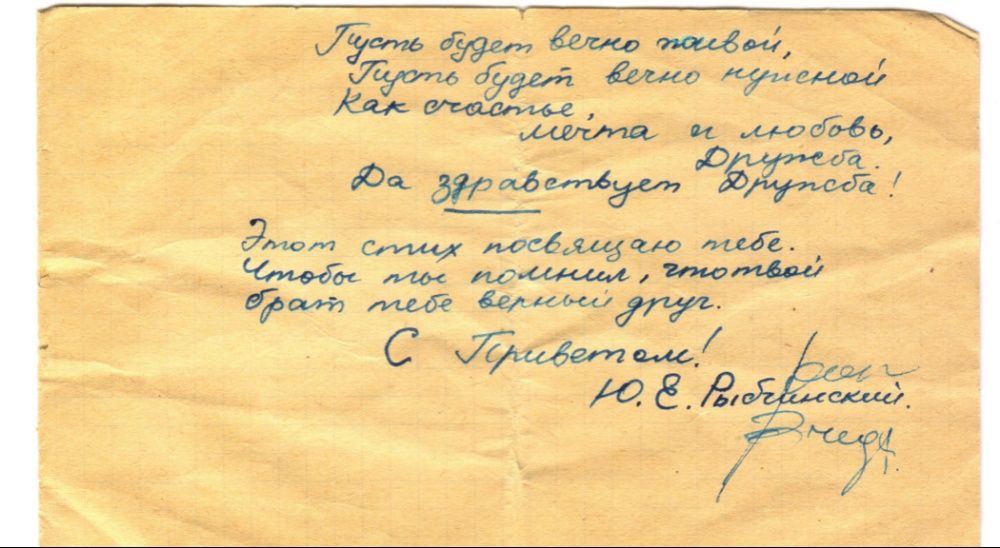 Пусть будет вечно живой,
Пусть будет вечно нужной
Как счастье,
мечта и любовь,
Дружба.
Да здравствует Дружба!
Этот стих посвящаю тебе.
Чтобы ты помнил, что твой
брат тебе верный друг.
С Приветом!
Ю. Е. Рыбчинский.